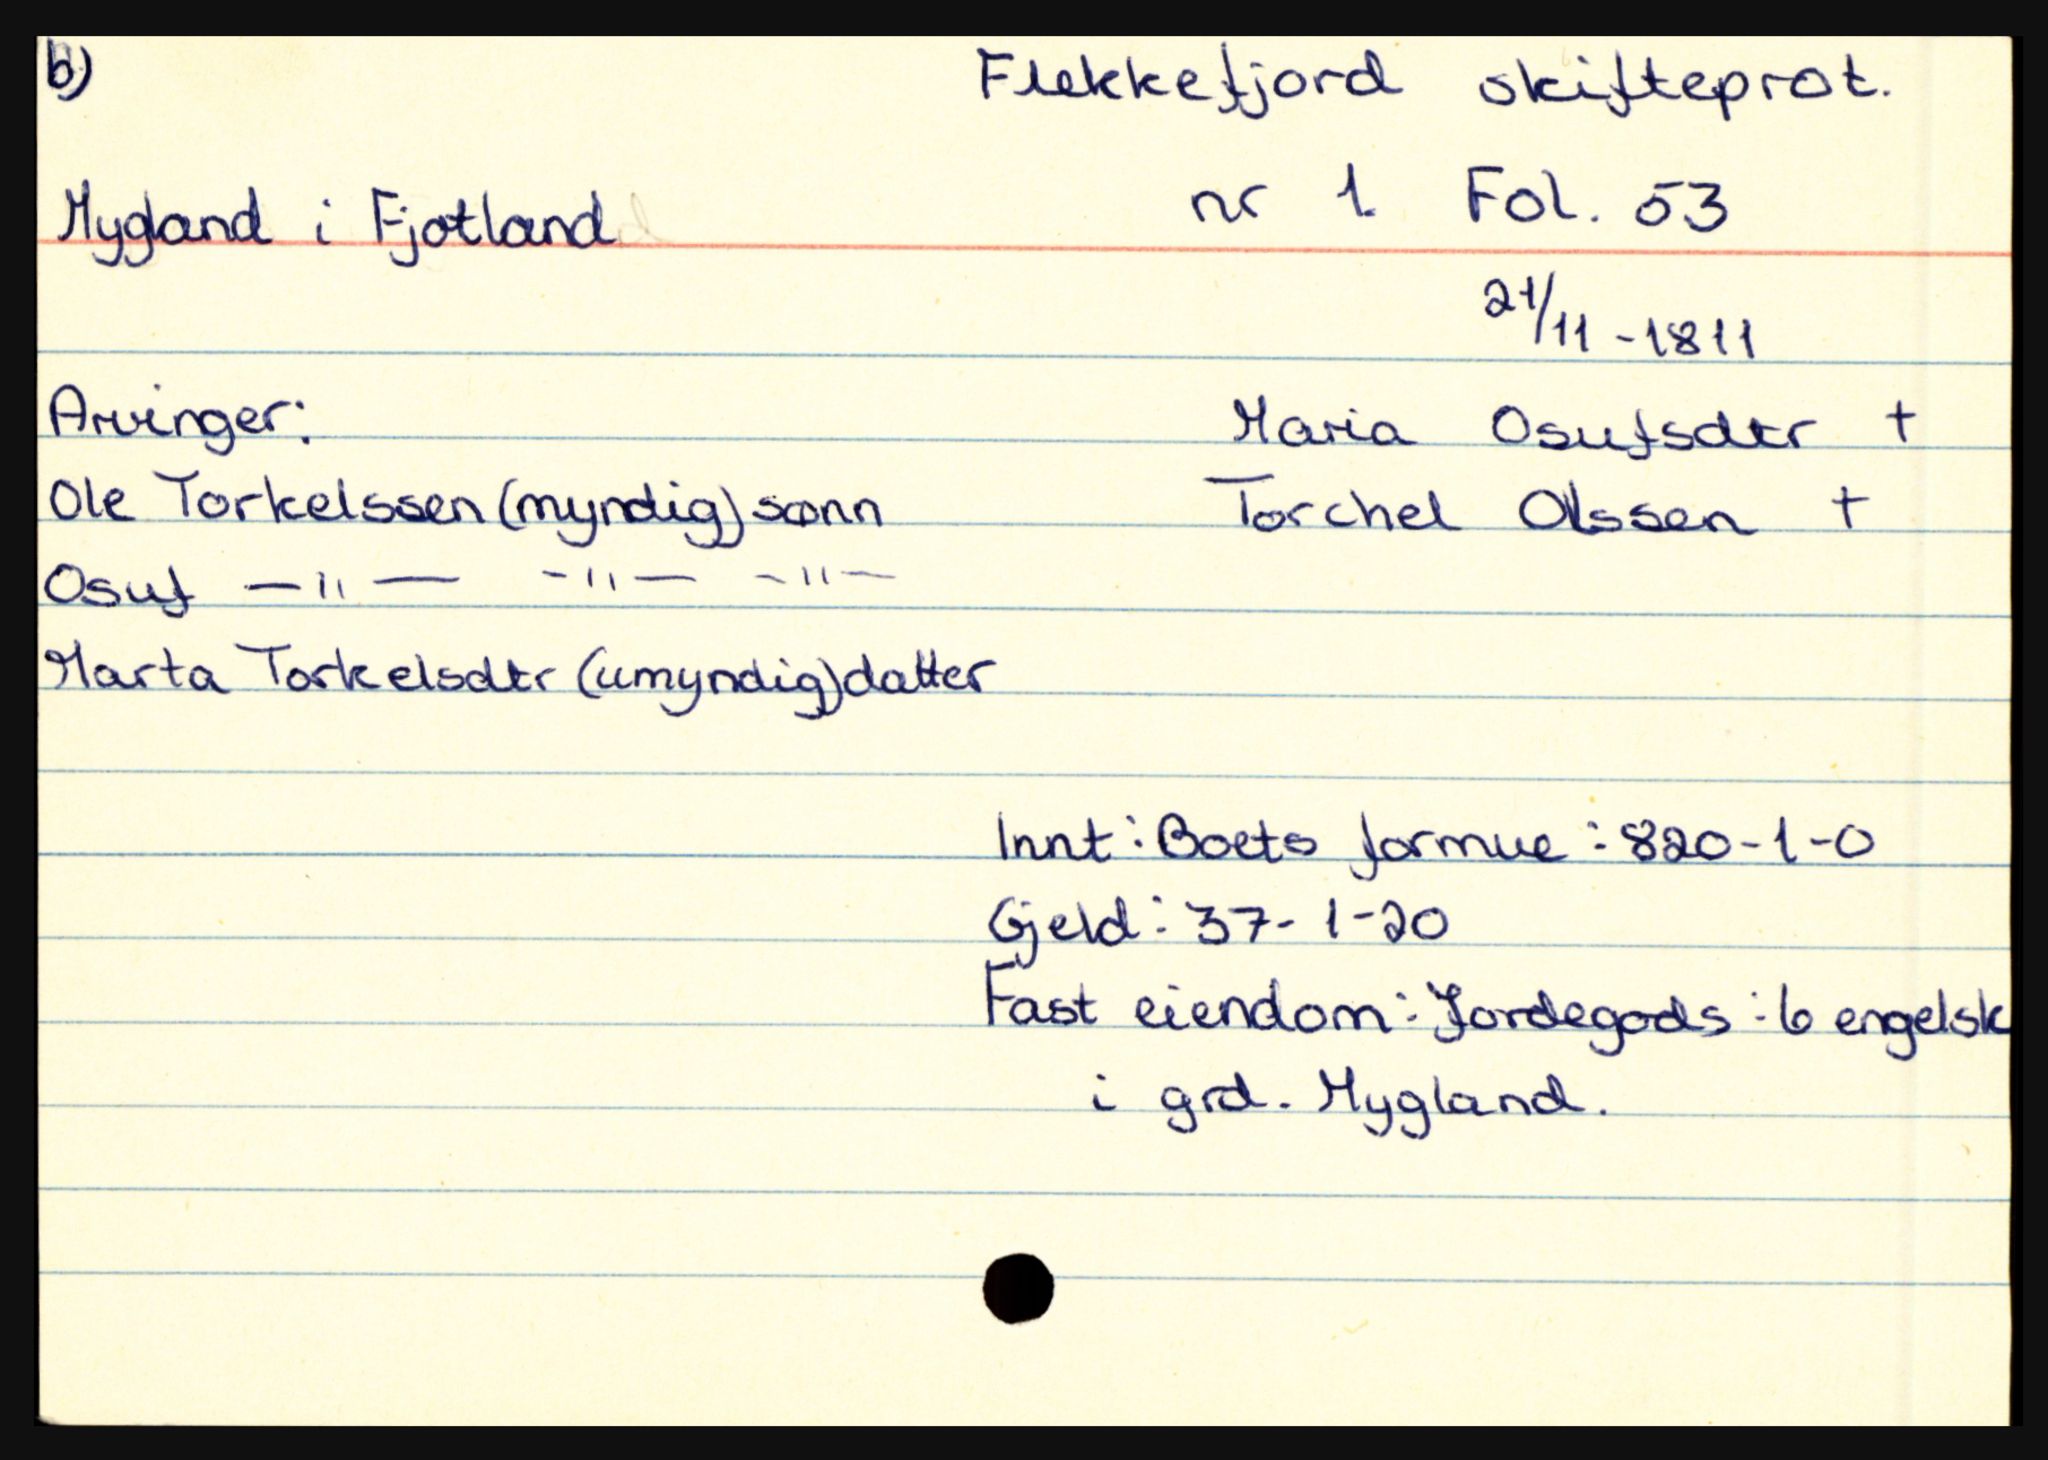 b)
Flekkefjord skifteprot.
Mygland i Fjotland
nr 1. Fol. 53
21/11 - 1811
Arvinger:
Maria Osufsdtr +
Ole Torkelssen (myndig) sønn
Torchel Olssen +
Osuf — " — — " — — " —
Marta Torkelsdtr (umyndig) datter
Innt: Boets formue: 820-1-0
Gjeld: 37-1-20
Fast eiendom: Jordegods: 6 engelsk
i grd. Mygland.